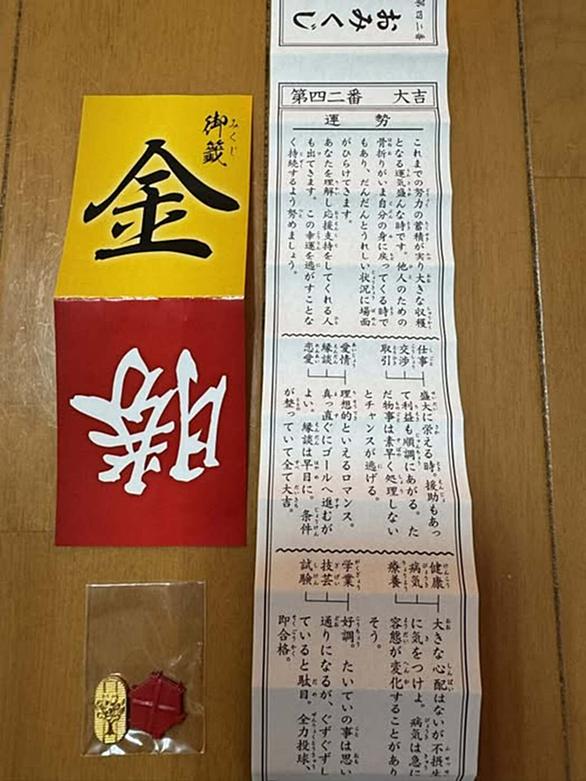 第四二番
おみくじ
第四二番　大吉
運勢
これまでの努力の蓄積が実り大きな収穫
となる運気盛んな時です。他人のための
骨折りがいま自分の身に戻ってくる時で
もあり、だんだんとうれしい状況に場面
がひらけてきます。
あなたを理解し応援支持をしてくれる人
も出てきます。この幸運を逃がすことな
く持続するよう努めましょう。
仕事
交渉
取引
盛大に栄える時。援助もあっ
て利益も順調にあがる。た
だ物事は素早く処理しない
とチャンスが逃げる。
愛情
縁談
恋愛
理想的といえるロマンス。
真っ直ぐにゴールへ進むが
よい。縁談は早目に。条件
が整っていて全て大吉。
健康
病気
療養
大きな心配はないが不摂生
に気をつけよ。病気は急に
容態が変化することがあり
そう。
学業
技芸
試験
好調。たいていの事は思い
通りになるが、ぐずぐずし
ていると駄目。全力投球、
即合格。
御籤
みくじ
金
勝